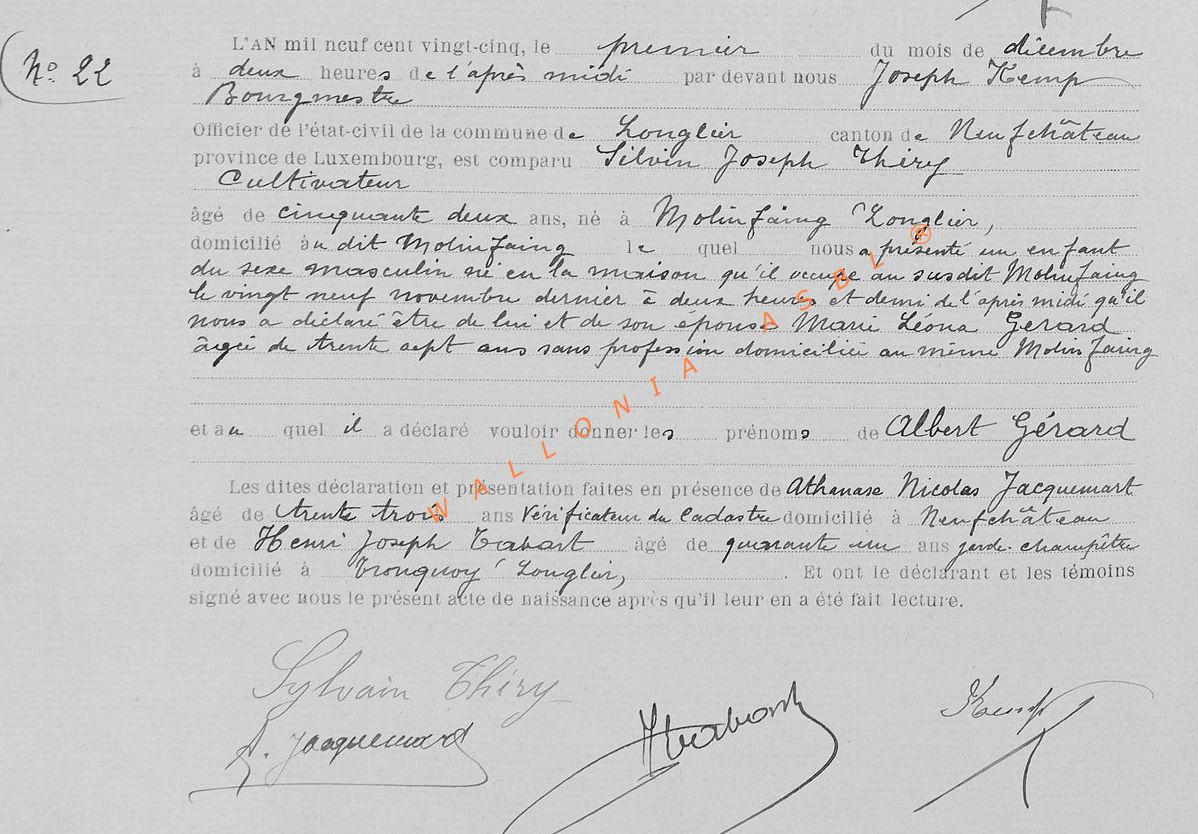 N° 22
L'AN mil neuf cent vingt-cinq, le premier du mois de décembre
à deux heures de l'après midi par devant nous Joseph Kemp
Bourgmestre
Officier de l'état-civil de la commune de Longlier canton de Neufchâteau
province de Luxembourg, est comparu Silvin Joseph Théry
Cultivateur
âgé de cinquante deux ans, né à Molinfaing Longlier,
domicilié au dit Molinfaing le quel nous a présenté un enfant
du sexe masculin né en la maison qu'il occupe au susdit Molinfaing
le vingt neuf novembre dernier à deux heures et demi de l'après midi qu'il
nous a déclaré être de lui et de son épouse Marie Léona Gerard
âgée de trente sept ans sans profession domiciliée au même Molinfaing
et au quel il a déclaré vouloir donner les prénoms de Albert Gérard
Les dites déclaration et présentation faites en présence de Athanase Nicolas Jacquemart
âgé de trente trois ans Vérificateur du Cadastre domicilié à Neufchâteau
et de Henri Joseph Tabart âgé de quarante un ans garde-champêtre
domicilié à Tronquoy Longlier, . Et ont le déclarant et les témoins
signé avec nous le présent acte de naissance après qu'il leur en a été fait lecture.
WALLONIA ASBL ®
Sylvain Théry
A. Jacquemard
Kemp